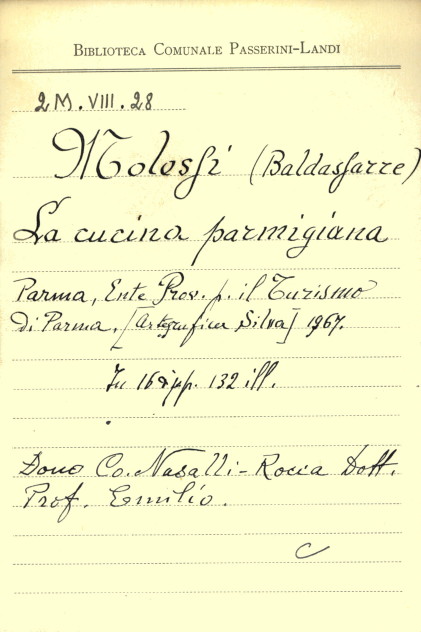 BIBLIOTECA COMUNALE PASSERINI-LANDI
2M.VIII.28
Molossi (Baldassarre)
La cucina parmigiana
Parma, Ente Prov. p. il Turismo
di Parma, [Artegrafica Silva] 1967.
In 16° pp. 132 ill.
Dono Co. Nasalli-Rocca Dott.
Prof. Emilio.
C